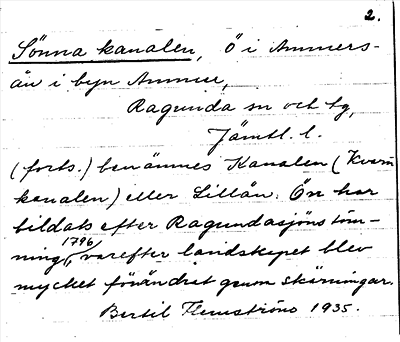 2.
Sönna kanalen, Ö i Ammers-
ån i byn Ammer,
Ragunda sn och tg,
Jämtl. l.
(forts.) benämnes Kanalen (Kvarn
kanalen) eller Lillån. Ön har
bildats efter Ragundasjöns töm-
ning 1796, varefter landskapet blev
mycket förändrat genom skärningar.
Bertil Flemström 1935.